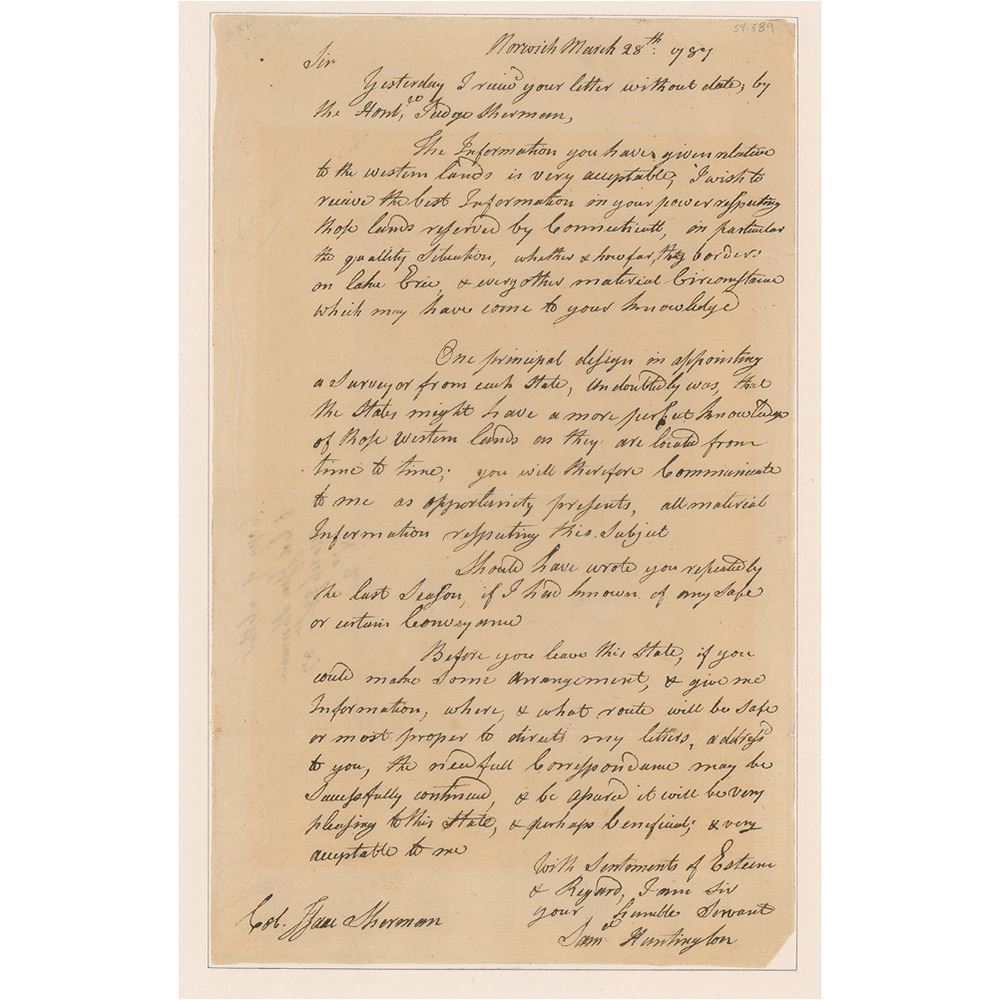 54.589
Norwich March 28th. 1787
Sir
Yesterday I receiv'd your letter without date, by
the Honble. Judge Sherman,
The Information you have given relative
to the western lands is very acceptable, I wish to
receive the best Information in your power respecting
those lands reserved by Connecticutt, in particular
the quallity Situation, whether & how far, they border
on lake Erie, & every other material Circumstance
which may have come to your knowledge
One principal design in appointing
a Surveyor from each State, undoubtedly was, that
the States might have a more perfect knowledge
of those western lands as they are located from
time to time; you will therefore Communicate
to me as opportunity presents, all material
Information respecting this Subject
Should have wrote you repeatedly
the last Season, if I had known of any safe
or certain Conveyance
Before you leave this State, if you
could make some arrangement, & give me
Information, where, & what route will be safe
or most proper to direct my letters, address'd
to you, the needfull Correspondance may be
Successfully continued, & be assured it will be very
pleasing to this State, & perhaps beneficial; & very
acceptable to me
With Sentiments of Esteem
& Regard, I am Sir
your humble Servant
Saml Huntington
Col. Isaac Sherman